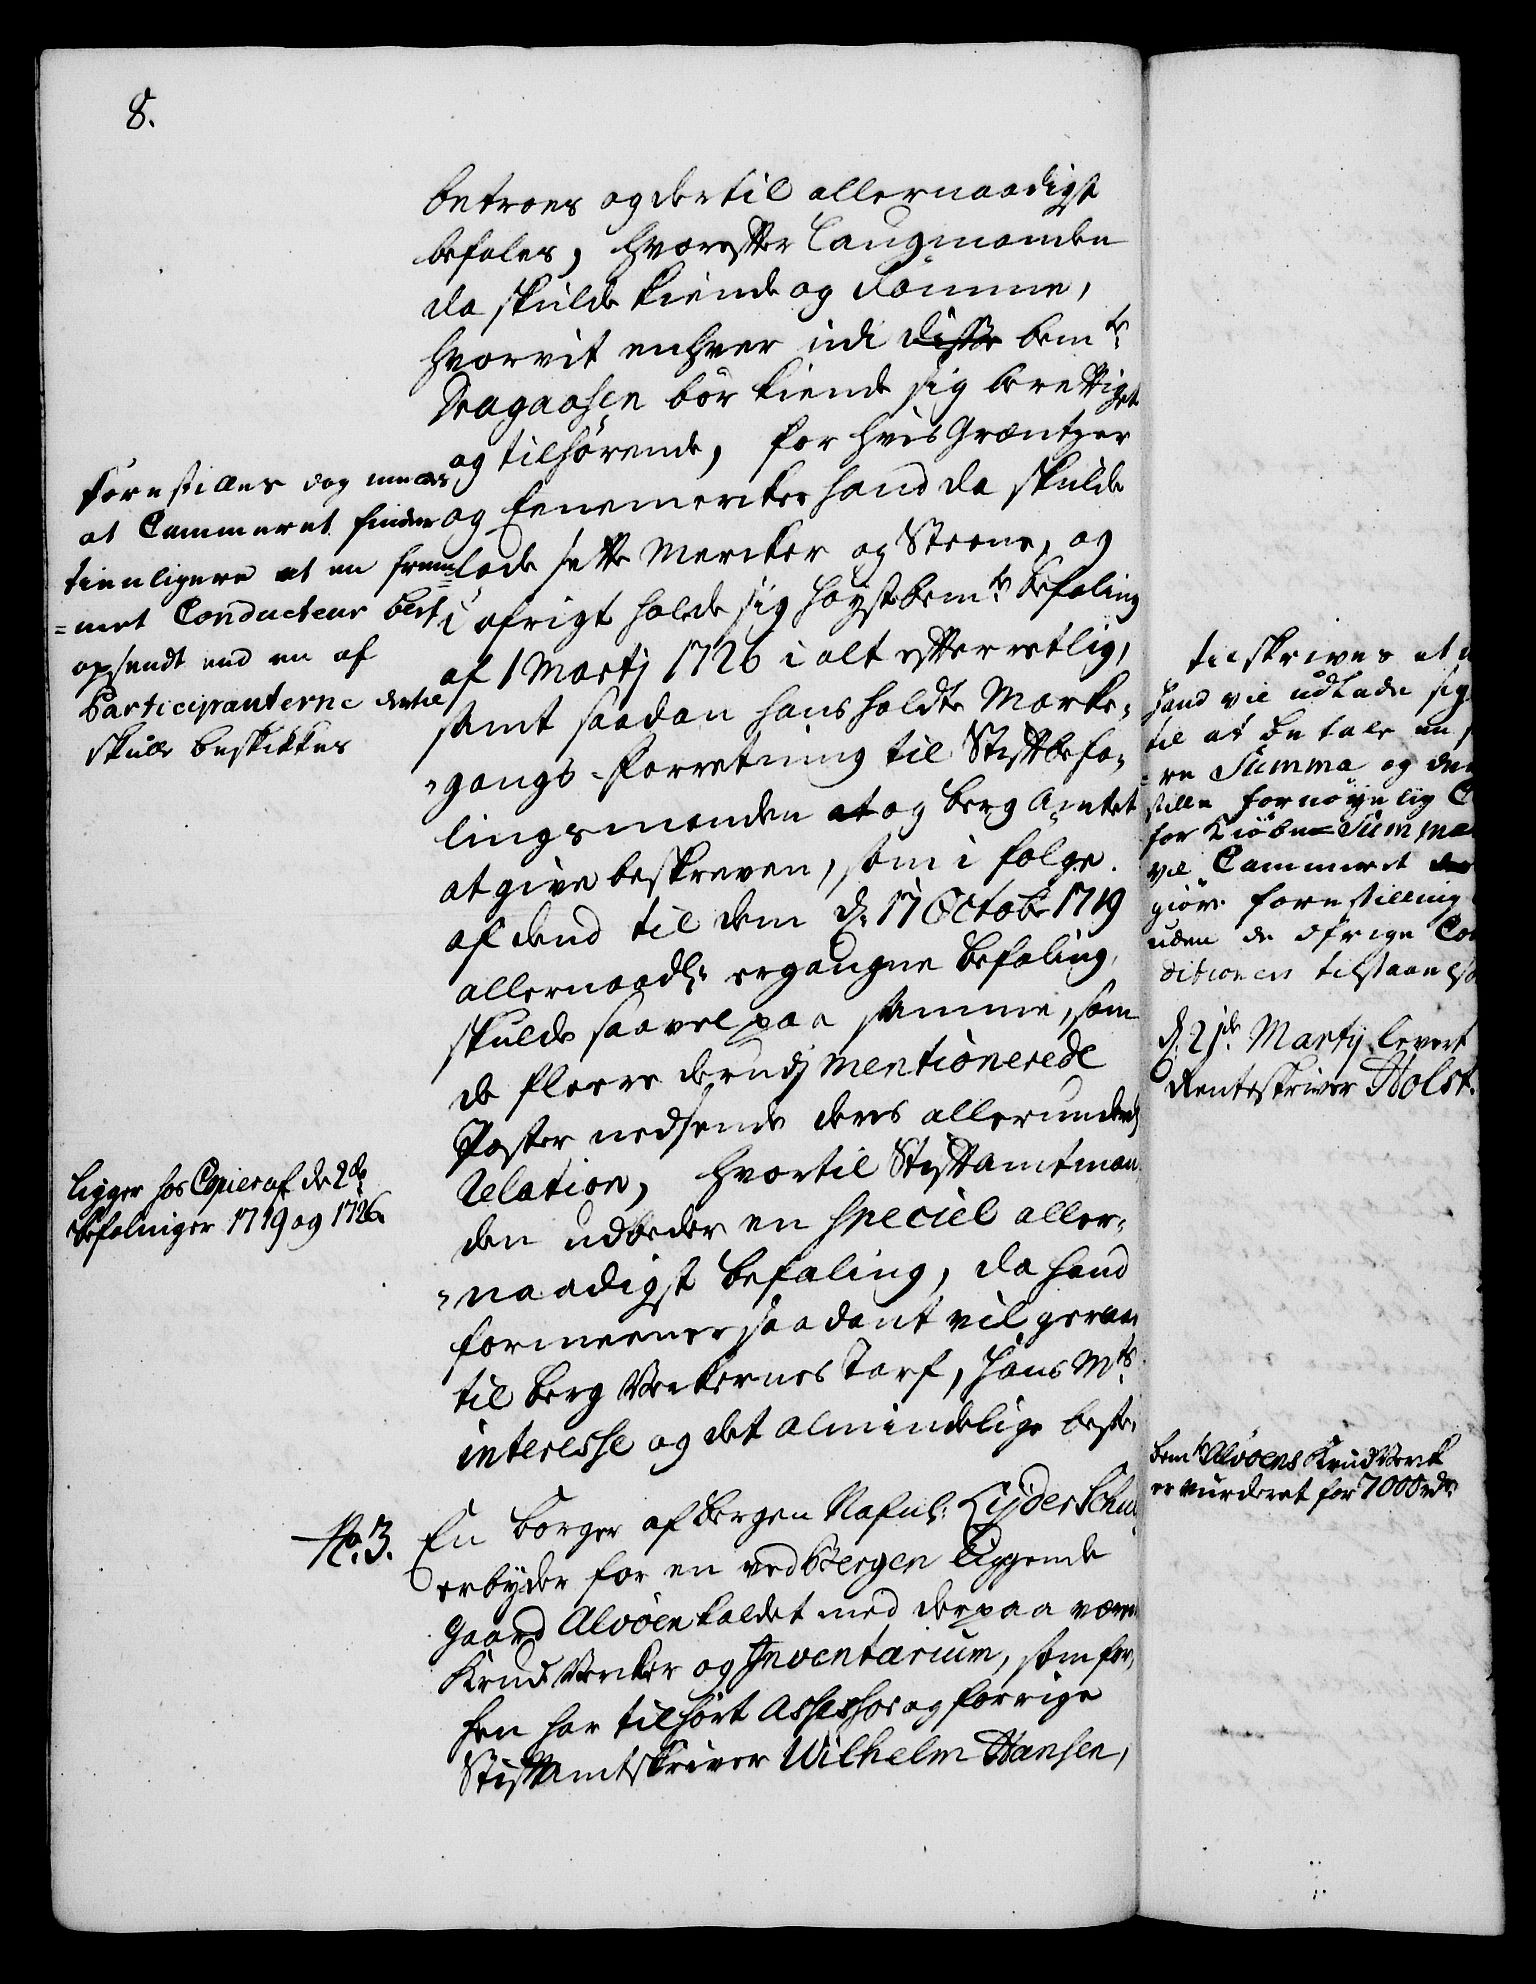 8.
betroes og dertil allernaadigst
befales, hvorefter Laugmanden
da skulde kiende og dømme,
hvorvit enhver udi disse bemte
Dragaasen bør kiende sig berettiget
og tilhørende, for hvis Grentzer
og Eenemercker hand da skulde
lade sette Mercker og Steene, og
i øfrigt holde sig høystbemte befaling
af 1 Martij 1726 i alt efterretlig,
samt saadan hans holdte Marke-
gangs-forretning til Stiftbefa-
lingsmanden at og Berg Amtet
at give beskreven, som i følge
af dend til dem d. 17 Octobr 1719
allernaadl: ergangne befaling,
skulde saavel paa samme, som
de fleere derudj mentionerede
Poster nedsende deres allerunderd
Relation, hvortil Stiftamtman-
den udbeder en speciel aller-
naadigst befaling, da hand
formeener saadant vil geraa
til Berg Verkernes Tarf, Hans Mts
interesse og det almindelige beste.
forestilles dog
at Cammeret finder
tienligere at en frem-
met Conducteur blef
opsendt end en af
Participanterne dertil
skulle beskikkes
ligger hos Copier af de 2de
befalinger 1719 og 1726
No. 3. En borger af Bergen Nafnl: Lyder Schu
erbyder for en ved Bergen liggende
Gaard Alvøen kaldet med derpaa være
Krud Verker og Inventarium, som for-
hen har tilhørt Assessor og forrige
Stiftamtskriver Wilhelm Hansen,
tilskrives at
hand vil udlade sig
til at betale en
re Summa og der
stille fornøyelig C
for Kiøbe-Summa
vil Cammeret
giøre forestilling
uden de øfrige Con
ditioner tilstaaelse
d. 21de Martij levert
Renteskriver Holst.
bemte Alvøens Krud Verk
er vurderet for 7000 rdr